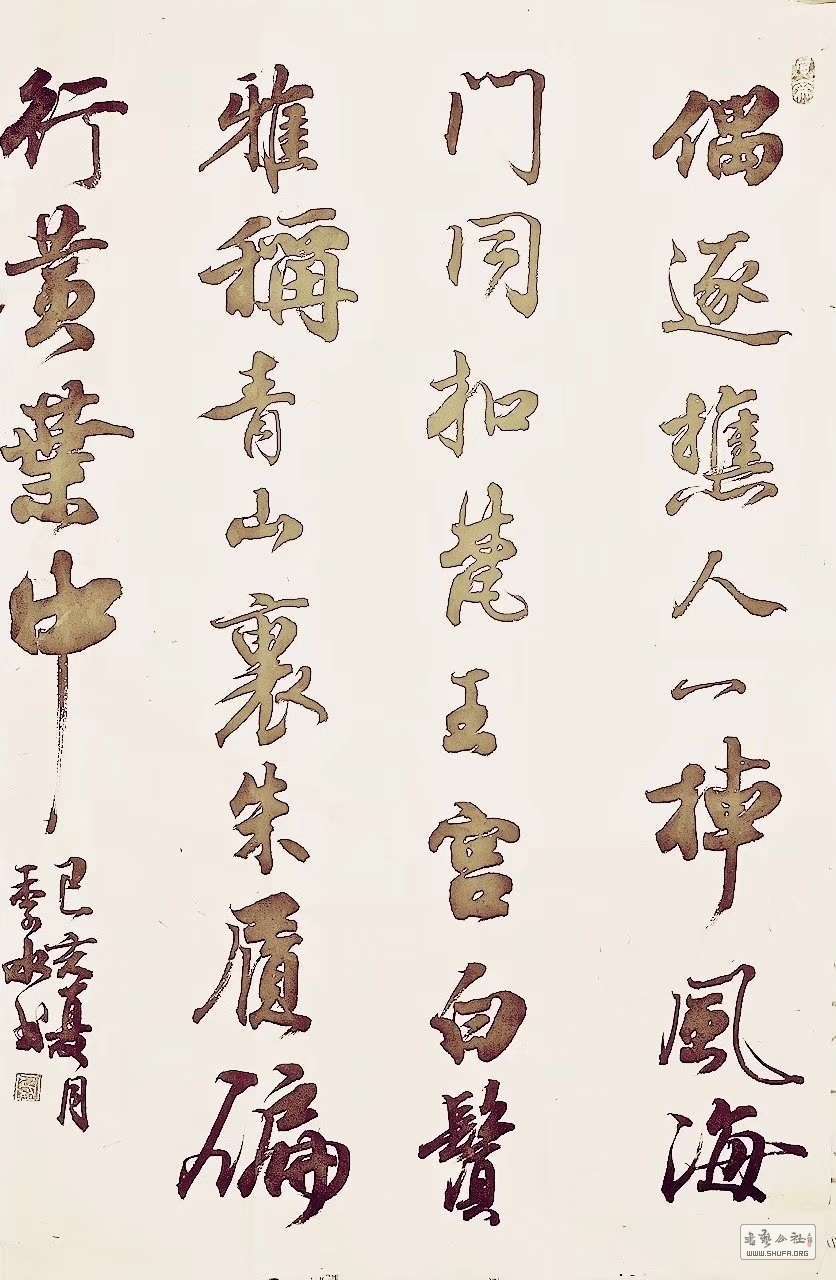 偶逐樵人一棹風海
門同扣梵王宮白鬢
雅稱青山裏朱履偏
行黃葉中
己亥夏月
書藝公社
WWW.SHUFA.ORG